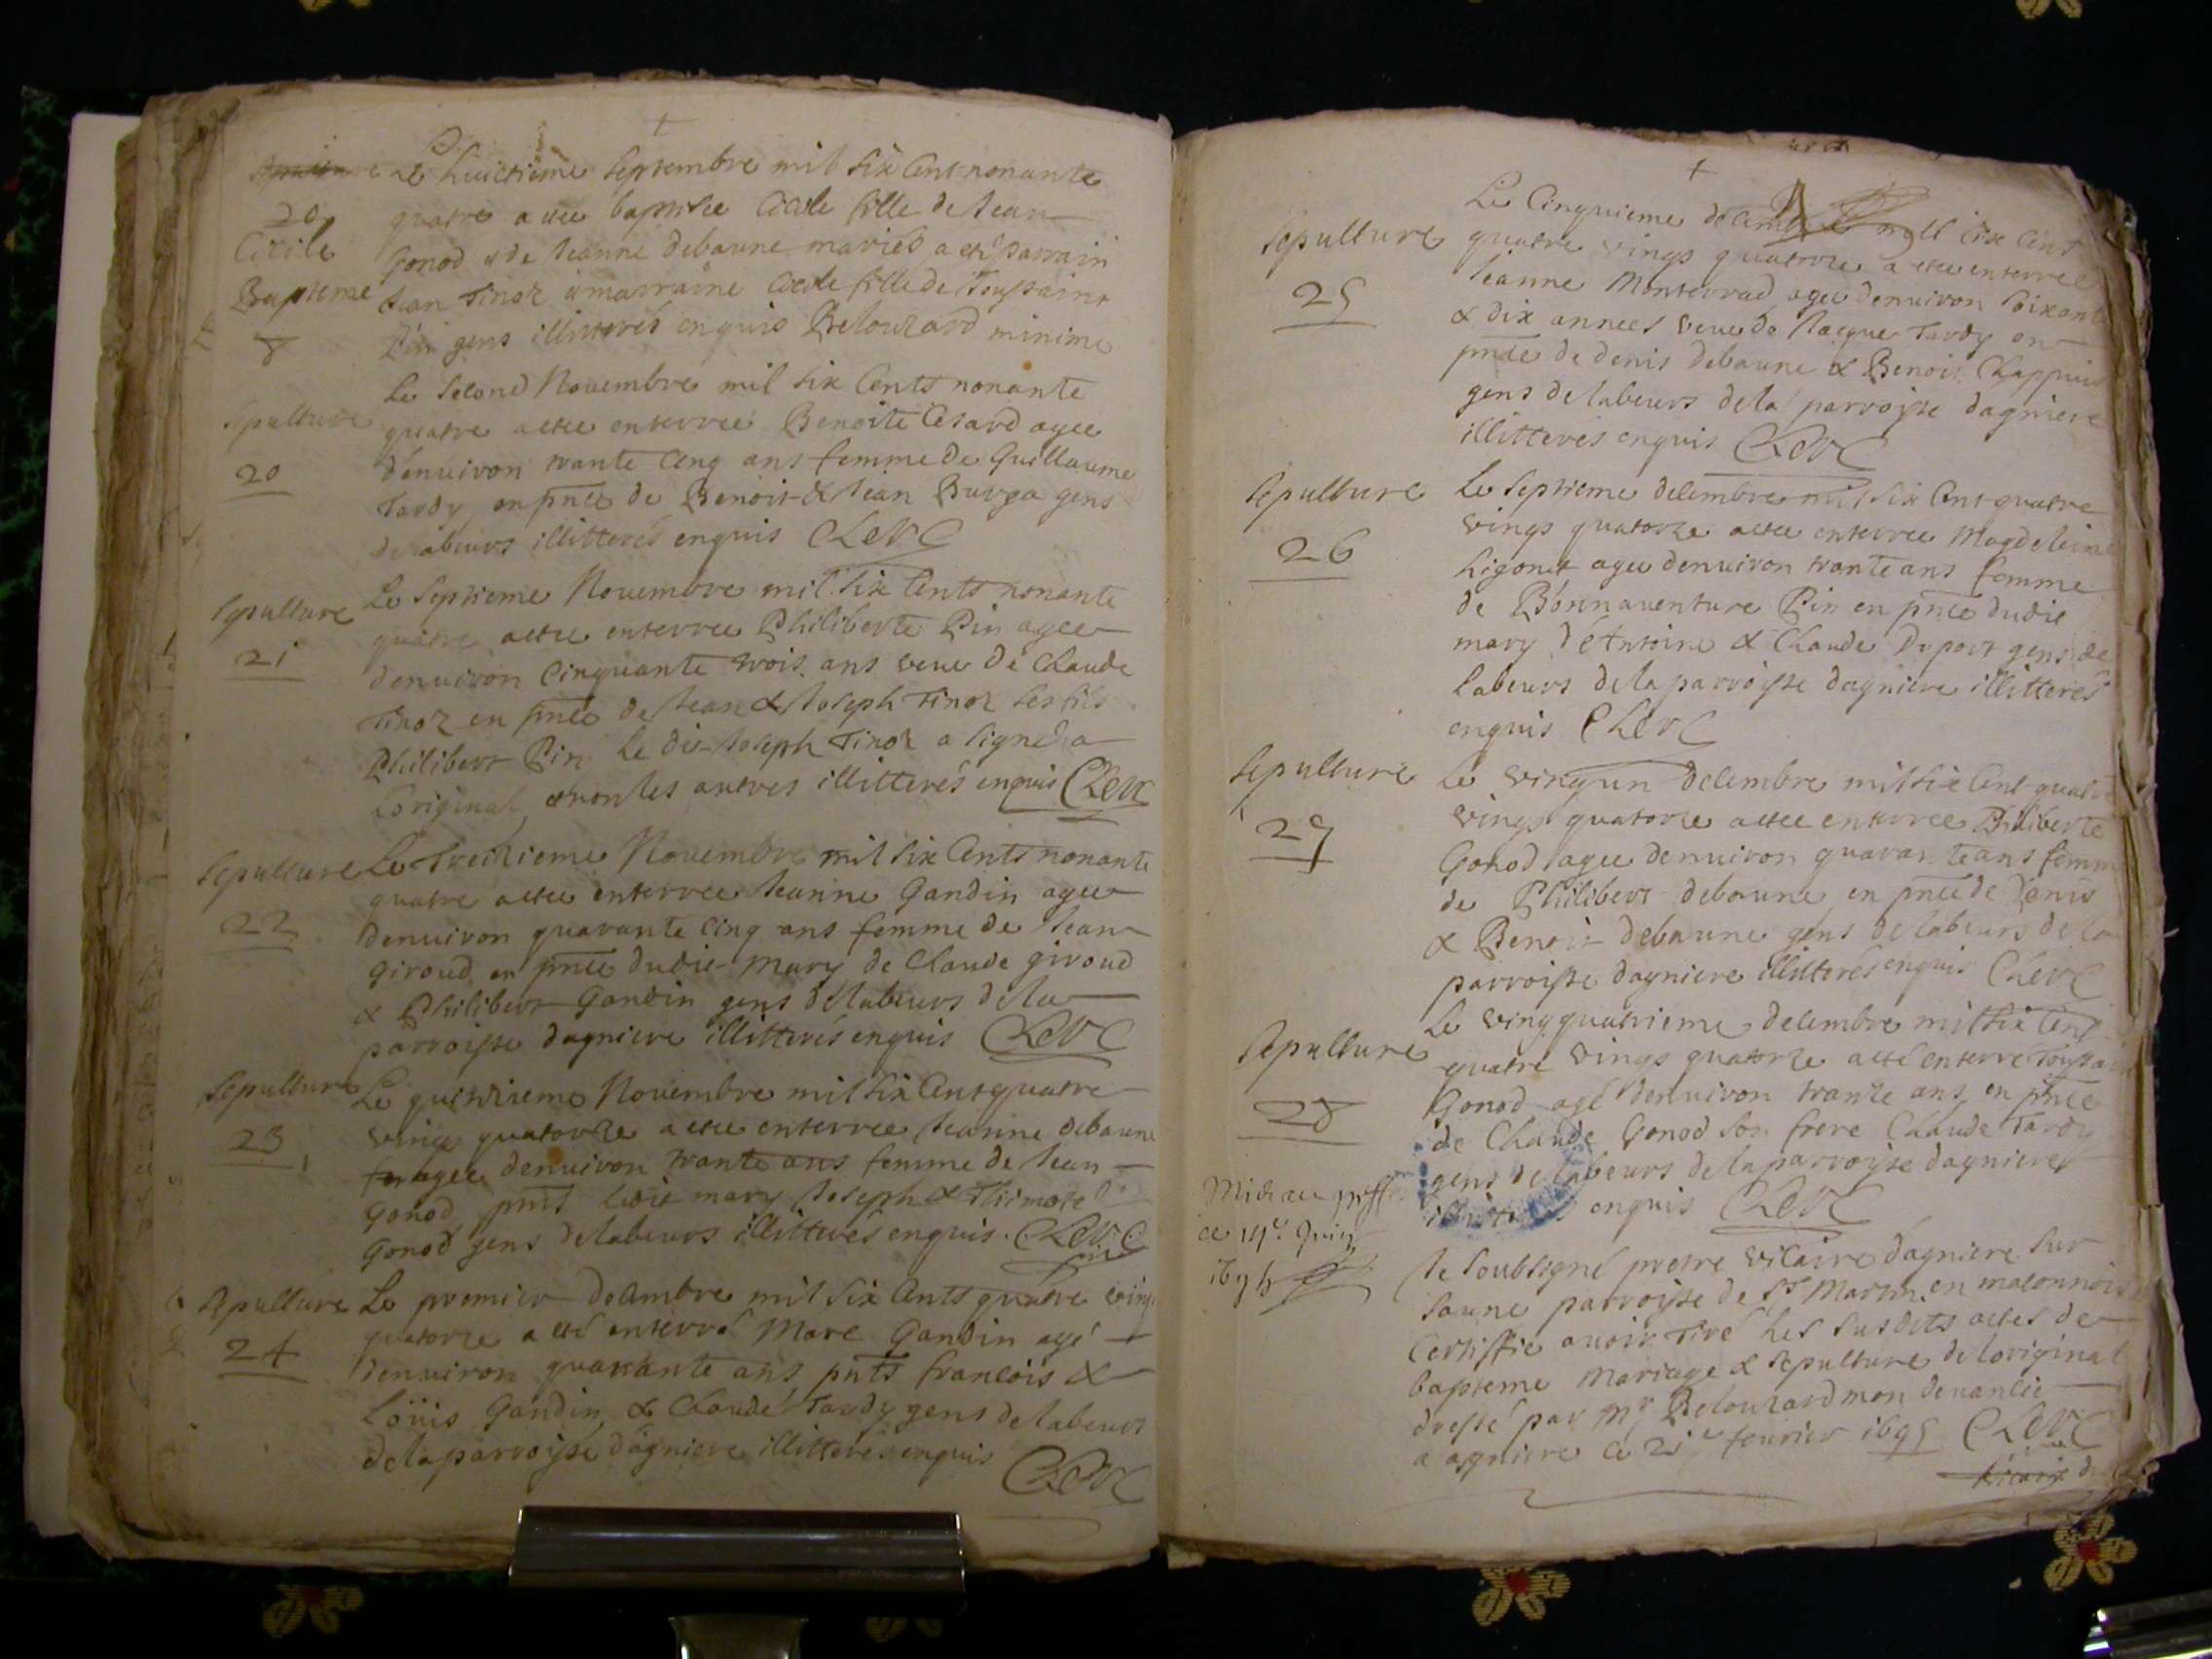 Le huictieme septembre mil six Cent nonante
20
quatre a etee baptisee Cicile fille de Jean
Cicile
Gonod & de Jeanne debaune mariés a eté parrain
Bapteme
Jean Tinoz & marraine Cicile fille de Toussaint
8
Pin gens illitterés enquis Belouzard minime
Le second Novembre mil six Cents nonante
Sepulture
quatre a etee enterree Benoite Cesard agee
20
denviron trante Cinq ans femme de Guillaume
Tardy en pnce de Benoit & Jean Burga gens
de labeurs illitterés enquis Clerc
Le Septieme Novembre mil six Cents nonante
Sepulture
quatre a etee enterree Philiberte Pin agee
21
denviron Cinquante trois ans veuve de Claude
Tinoz en pnce de Jean & Joseph Tinoz ses fils
Philibert Pin le dit Joseph Tinoz a signé a
Loriginal & non les autres illitterés enquis Clerc
Sepulture
Le Treizieme Novembre mil six Cents nonante
22
quatre a etee enterree Jeanne Gandin agee
denviron quarante Cinq ans femme de Jean
Giroud en pnce dudit mary de Claude giroud
& Philibert Gandin gens de labeurs de la
parroisse dagniere illitterés enquis Clerc
Sepulture
Le quinzieme Novembre mil six Cent quatre
23
vings quatorze a etee enterree Jeanne debaune
agee denviron trante ans femme de Jean
Gonod pnts ledit mary Joseph & Thimote
Gonod gens de labeurs illitterés enquis. Clerc
Sepulture
Le premier decembre mil six Cents quatre ving
24
quatorze a eté enterré Marc Gandin agé
denviron quarante ans pnts francois &
Loüis Gandin & Claude Tardy gens de labeurs
de la parroisse dagniere illitterés enquis
Clerc
Le Cinquieme decembre mil six Cent
Sepulture
quatre vings quatorze a etee enterree
25
Jeanne Monterrad agee denviron soixante
& dix annees veuve de Jacque Tardy en
pnce de denis debaune & Benoit Chappuis
gens de labeurs de la parroisse dagniere
illitterés enquis Clerc
Sepulture
Le Septieme decembre mil six Cent quatre
26
vings quatorze a etee enterree Magdeleine
Ligonet agee denviron trante ans femme
de Bonnaventure Pin en pnce dudit
mary d'Antoine & Claude Duport gens de
labeurs de la parroisse dagniere illitterés
enquis Clerc
Sepulture
Le vingun decembre mil six Cent quatre
27
vings quatorze a etee enterree Philiberte
Gonod agee denviron quarante ans femme
de Philibert debaune en pnce de Denis
& Benoit debaune gens de labeurs de la
parroisse dagniere illitterés enquis Clerc
Sepulture
Le vingquatrieme decembre mil six Cent
quatre vings quatorze a eté enterré Toussaint
28
Gonod agé denviron trante ans en pnce
de Claude Gonod son frere Claude Tardy
gens de labeurs de la parroisse dagniere
enquis Clerc
Mis au greffe
ce 14e Juin
Je Soubsigné pretre vicaire dagniere sur
saune parroisse de St Martin en maconnois
Certiffie avoir Tiré les susdits actes de
bapteme mariage & sepulture de loriginal
dressé par Mr Belouzard mon devancié
a agniere ce 21e fevrier 1695 Clerc
vicaire